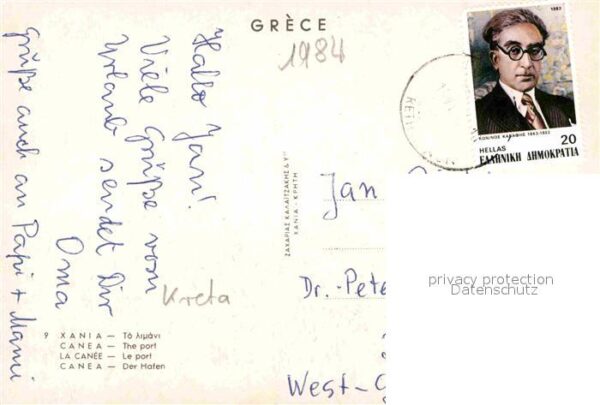 GRÈCE
1984
Hallo Jan!
Viele Grüße vom
Urlaub sendet Dir
Oma
Grüße auch an Papi + Mami
Kreta
9 ΧΑΝΙΑ — Τὸ λιμάνι
CANEA — The port
LA CANÉE — Le port
CANEA — Der Hafen
ΖΑΧΑΡΙΑΣ ΚΑΛΑΪΤΖΑΚΗΣ & Υἱοὶ
ΧΑΝΙΑ - ΚΡΗΤΗ
1983
ΚΩΝ/ΝΟΣ ΚΑΒΑΦΗΣ 1863-1933
HELLAS 20
ΕΛΛΗΝΙΚΗ ΔΗΜΟΚΡΑΤΙΑ
Jan
Dr.-Pete
West-G
privacy protection
Datenschutz